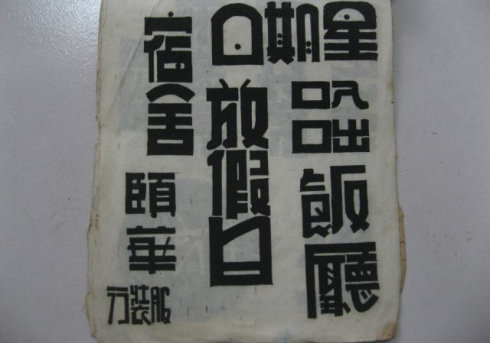 星期日
入口
出口
飯廳
放假日
宿舍
頤華
服裝行